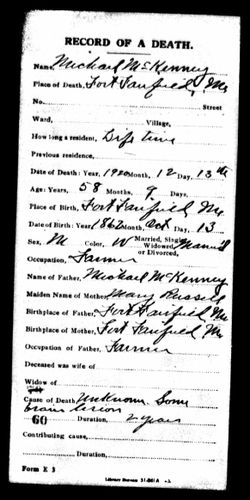 RECORD OF A DEATH.
Name, Michael McKenney
Place of Death, Fort Fairfield, Me
No. Street
Ward, Village,
How long a resident, Life time
Previous residence,
Date of Death: Year, 1920 Month, 12 Day, 13th
Age: Years, 58 Months, 9 Days,
Place of Birth, Fort Fairfield Me.
Date of Birth: Year, 1862 Month, Day, 13
Sex, M Color, W Married, Single, Widowed, or Divorced, Married
Occupation, Farmer
Name of Father, Michael McKenney
Maiden Name of Mother, Mary Russell
Birthplace of Father, Fort Fairfield Me
Birthplace of Mother, Fort Fairfield Me
Occupation of Father, Farmer
Deceased was wife of
Widow of
Cause of Death, Unknown Some
brain lesion
60 Duration, 2 years
Contributing cause,
Duration,
Form K 3
Library Bureau